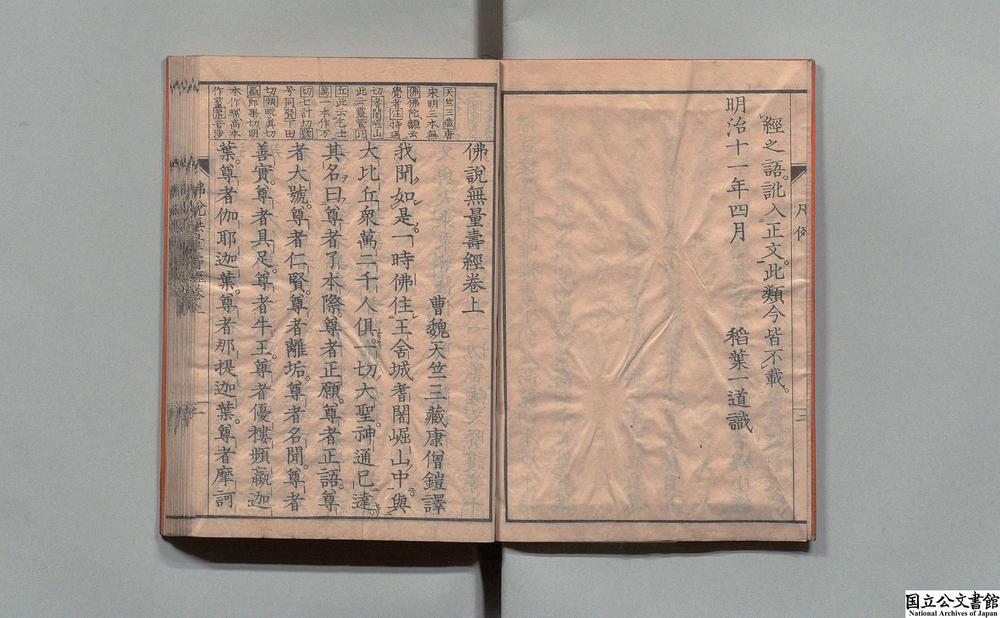 經之語訛入正文此類今皆不載。
明治十一年四月
稻葉一道識
凡例
三
佛說無量壽經卷上
曹魏天竺三藏康僧鎧譯
我聞如是。一時佛住王舍城耆闍崛山中。與
大比丘衆萬二千人俱。一切大聖。神通已達。
其名曰尊者了本際。尊者正願。尊者正語。尊
者大號。尊者仁賢。尊者離垢。尊者名聞。尊者
善實。尊者具足。尊者牛王。尊者優樓頻蠃迦
葉。尊者伽耶迦葉。尊者那提迦葉。尊者摩訶
天竺三藏唐
宋明三本無
一
国立公文書館
National Archives of Japan